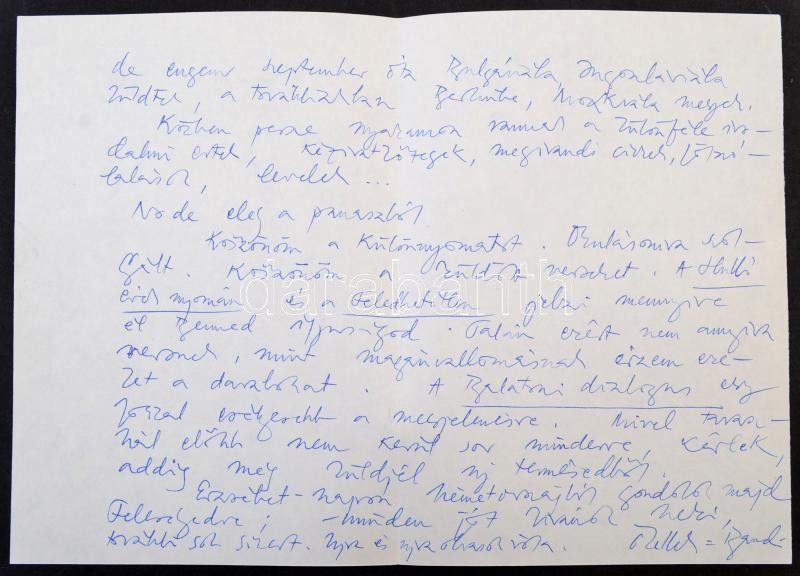 de engem szeptember óta Bulgáriába, Jugoszláviába
küldtek, a továbbiakban Berlinbe, Moszkvába megyek.
Közben persze nyakamon vannak a különféle iro-
dalmi estek, kéziratkötegek, megírandó cikkek,
levelek ...
No de elég a panaszból
Köszönöm a különnyomatot. Okulásomra szol-
gált. Köszönöm a küldött verseket. A
évek nyomán és a Feledhetetlen jelzi mennyire
él Benned ifjuságod. Talán ezért nem annyira
versnek, mint magánvallomásnak érzem eze-
ket a darabokat. A Balatoni dialogus egy
fokkal esélyesebb a megjelenésre. Mivel tavasz-
nál előbb nem kerül sor minderre, kérlek,
addig még küldjél új termésedből.
Erzsébet-napon Németországból gondolok majd
Feleségedre; - minden jót kivánok neki,
további sok sikert. Ujra és ujra
darabanth